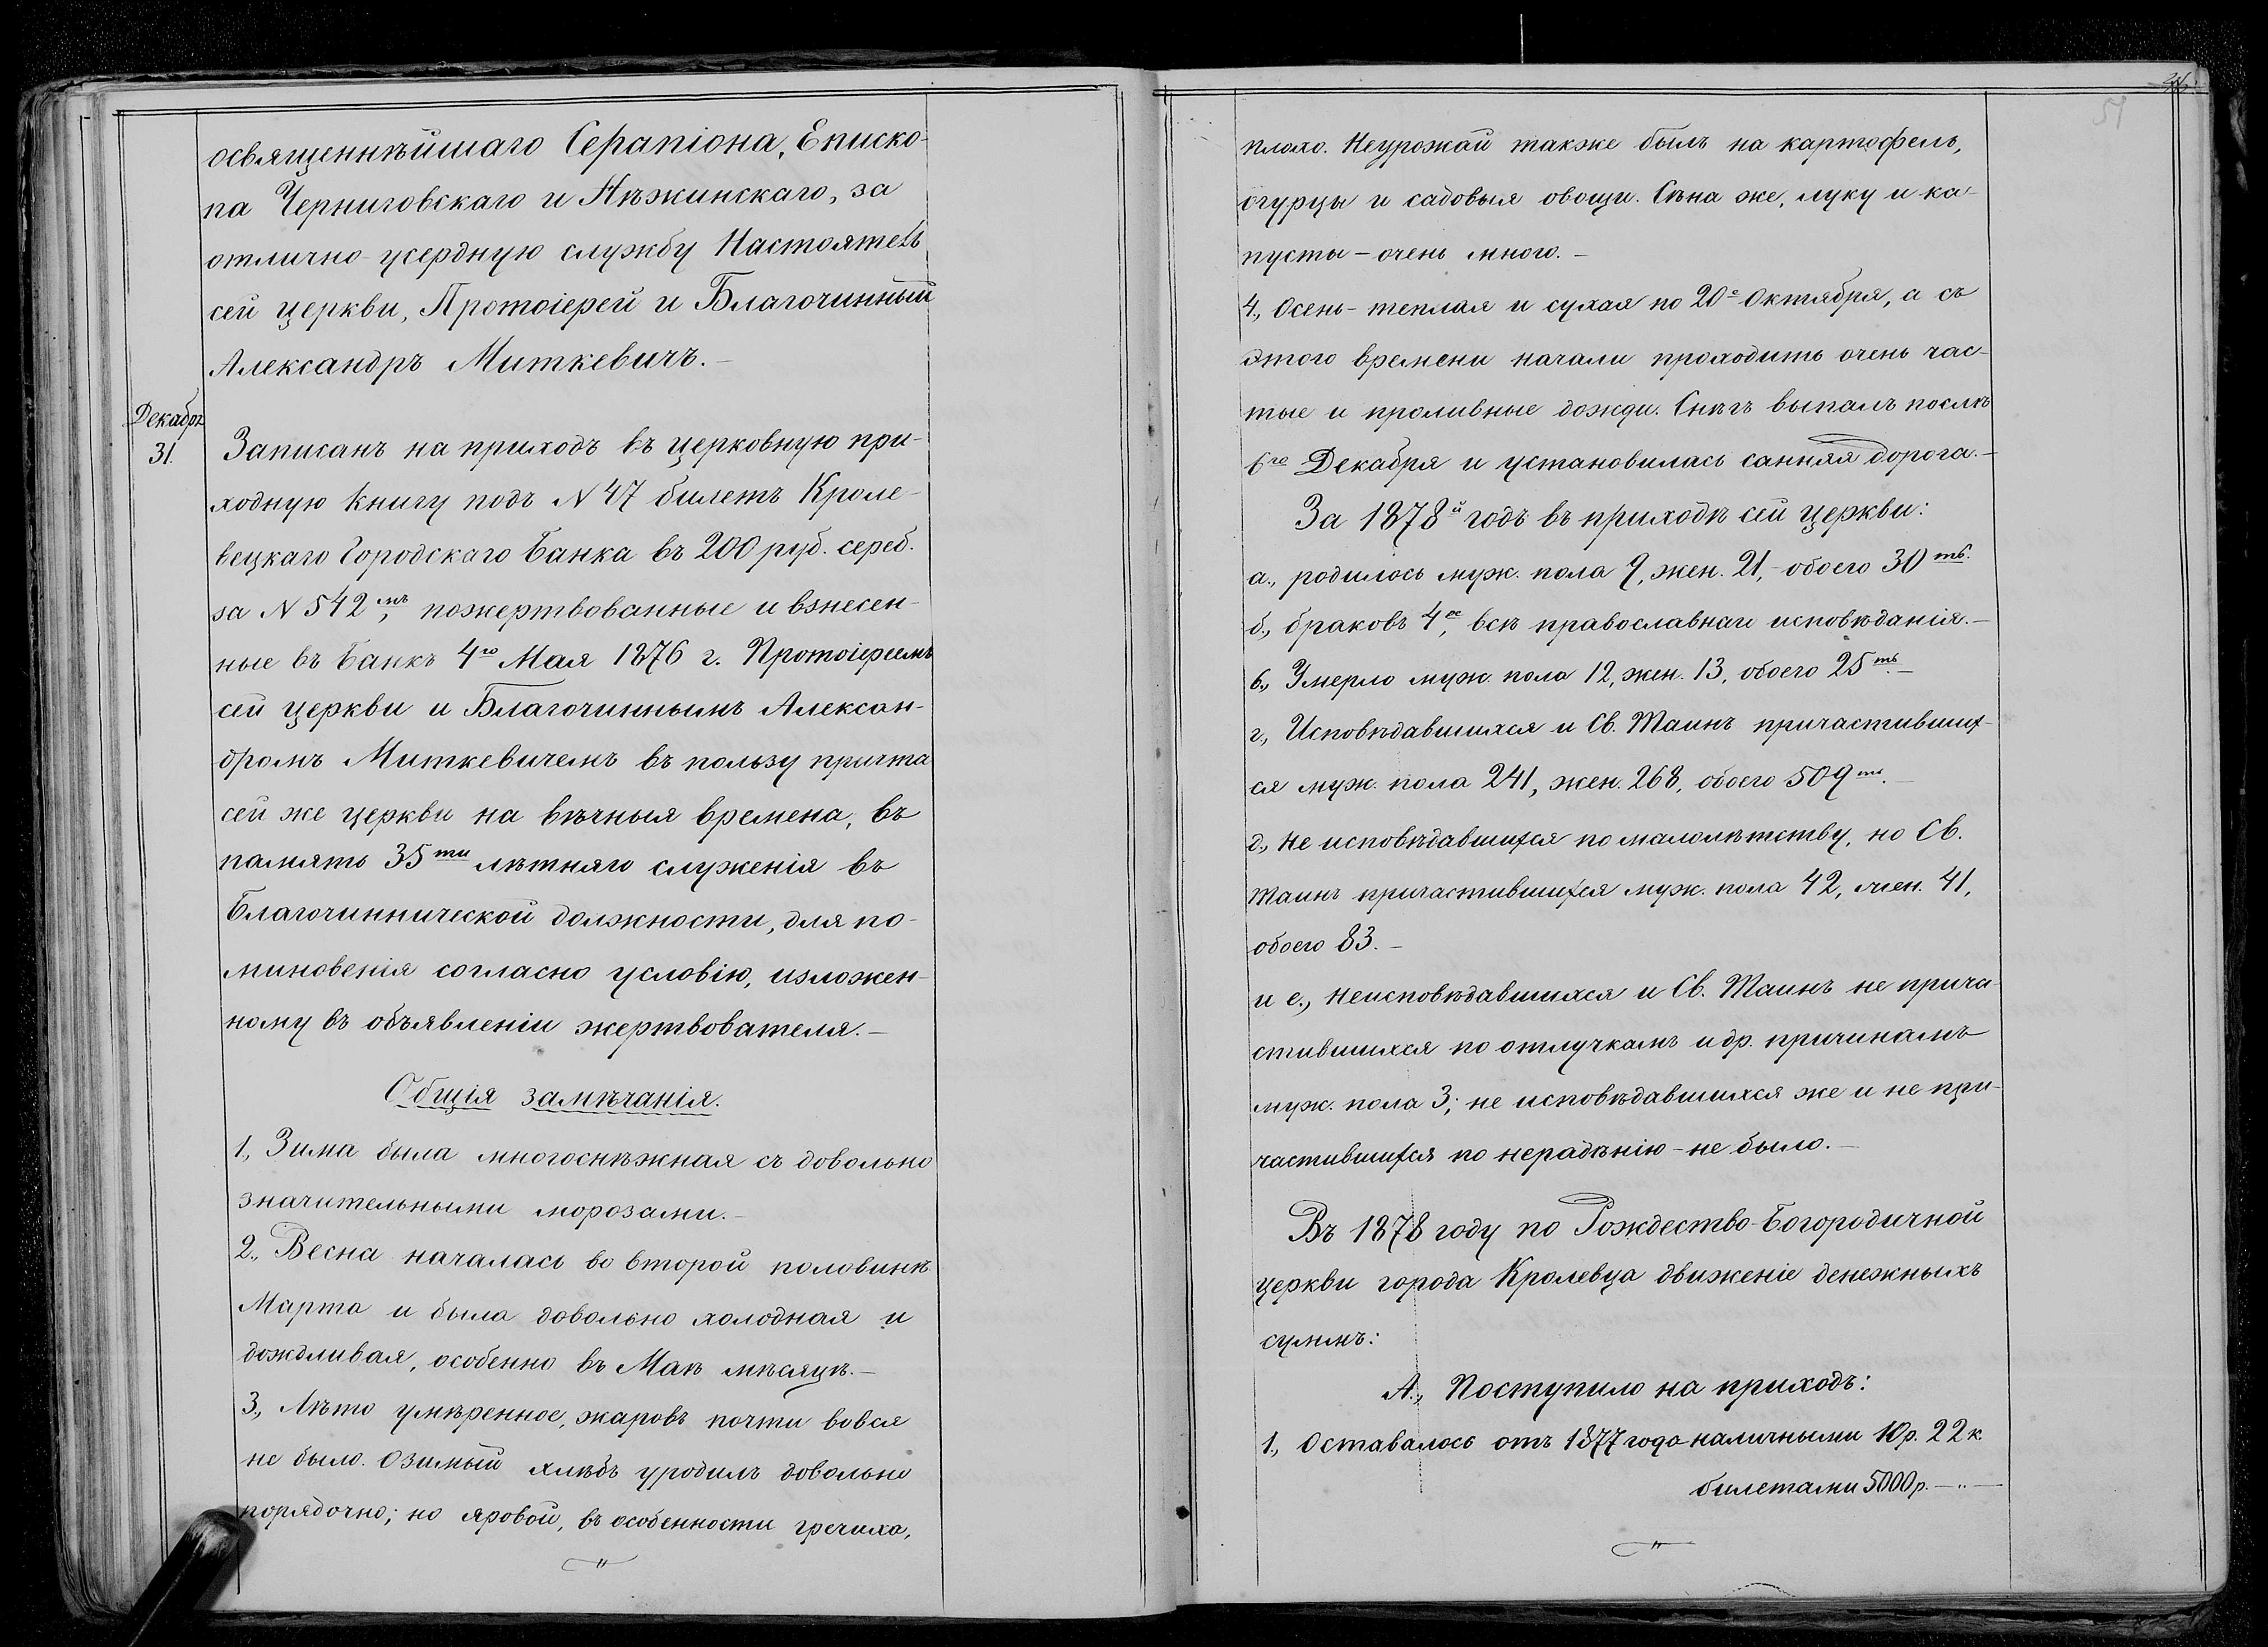 освященнѣйшаго Серапіона, Еписко-
па Черниговскаго и Нѣжинскаго, за
отлично-усердную службу Настоятель
сей церкви, Протоіерей и Благочинный
Александръ Миткевичъ.-
Декабря
31.
Записанъ на приходъ въ церковную при-
ходную книгу подъ N 47 билетъ Кроле-
вецкаго Городскаго Банка въ 200 руб. сереб.
за N 542мъ, пожертвованные и взнесен-
ные въ Банкъ 4го Мая 1876 г. Протоіереемъ
сей церкви и Благочиннымъ Алексан-
дромъ Миткевичемъ въ пользу причта
сей же церкви на вѣчныя времена, въ
память 35ти лѣтняго служенія въ
Благочиннической должности, для по-
миновенія согласно условію, изложен-
ному въ объявленіи жертвователя.-
Общія замѣчанія.
1., Зима была многоснѣжная съ довольно
значительными морозами.-
2., Весна началась во второй половинѣ
Марта и была довольно холодная и
дождливая, особенно въ Маѣ мѣсяцѣ.-
3., Лѣто умѣренное, жаровъ почти вовся
не было. Озимый хлѣбъ уродилъ довольно
порядочно; но яровой, въ особенности гречиха,
51
плохо. Неурожай также былъ на картофель,
огурцы и садовыя овощи. Сѣна же, луку и ка-
пусты - очень много.-
4., Осень - теплая и сухая по 20е Октября, а съ
этого времени начали проходить очень час-
тые и проливные дожди. Снѣгъ выпалъ послѣ
6го Декабря и установилась санняя дорога.-
За 1878й годъ въ приходѣ сей церкви:
а., родилось муж. пола 9, жен. 21, - обоего 30ть.
б., браковъ 4ре, всѣ православнаго исповѣданія.-
в., Умерло муж. пола 12, жен. 13, обоего 25ть.-
г., Исповѣдавшихся и Св. Таинъ причастивших-
ся муж. пола 241, жен. 268, обоего 509ть.-
д., Не исповѣдавшихся по малолѣтству, но Св.
Таинъ причастившихся муж. пола 42, жен. 41,
обоего 83.-
и е., Неисповѣдавшихся и Св. Таинъ не прича-
стившихся по отлучкамъ и др. причинамъ
муж. пола 3; не исповѣдавшихся же и не при-
частившихся по нерадѣнію - не было.-
Въ 1878 году по Рождество-Богородичной
церкви города Кролевца движеніе денежныхъ
суммъ:
А., Поступило на приходъ:
1., Оставалось отъ 1877 года наличными 10 р. 22 к.
билетами 5000 р. - " -